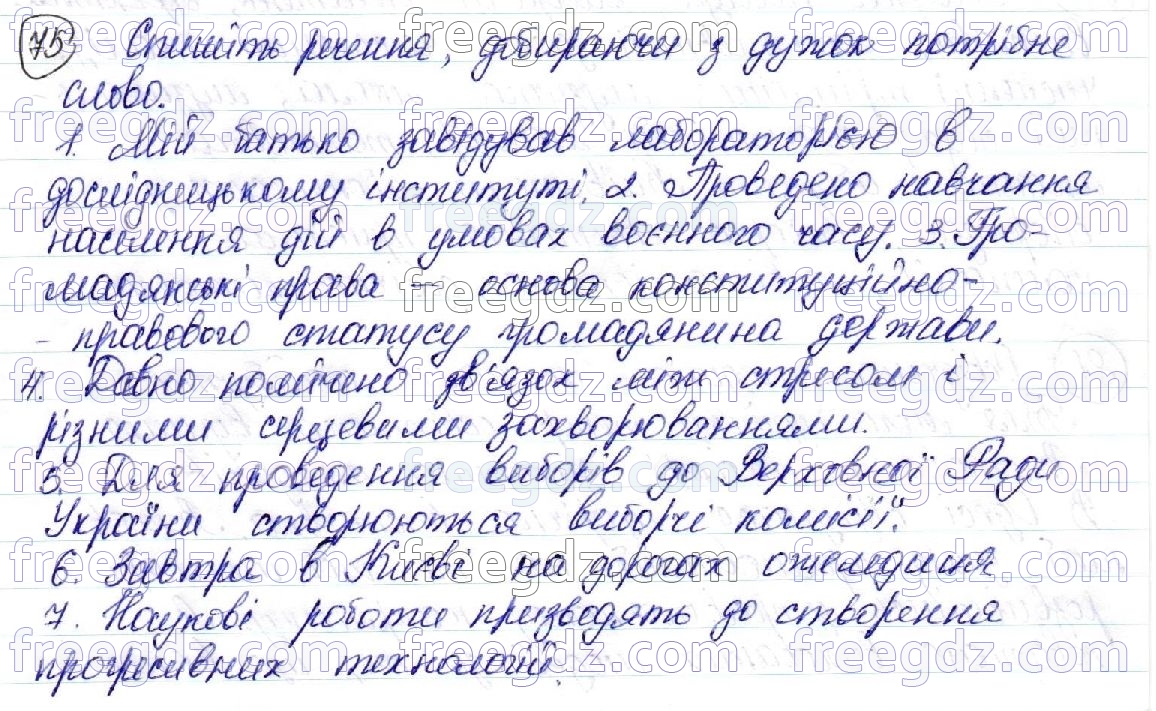 75 Спишіть речення, добираючи з дужок потрібне
слово.
1. Мій батько завідував лабораторією в
дослідницькому інституті. 2. Проведено навчання
населення дій в умовах воєнного часу. 3. Гро-
мадянські права – основа конституційно-
- правового статусу громадянина держави.
4. Давно помічено зв'язок між стресом і
різними серцевими захворюваннями.
5. Для проведення виборів до Верховної Ради
України створюються виборчі комісії.
6. Завтра в Києві на дорогах ожеледиця
7. Наукові роботи призводять до створення
прогресивних технологій.
freegdz.com